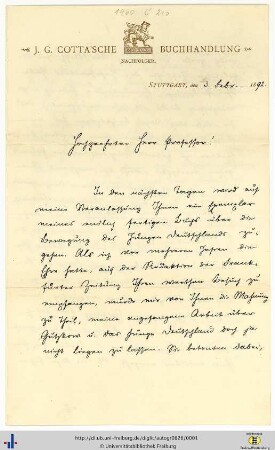 1900 G 200
J. G. COTTA'SCHE BUCHHANDLUNG
NACHFOLGER.
STUTTGART, den 3. Febr. 1892.
Hochgeehrter Herr Professor!
In den nächsten Tagen wird auf
meine Veranlassung Ihnen ein Exemplar
meines endlich fertigen Buchs über die
Bewegung des Jungen Deutschlands zu-
gehen. Als ich vor mehreren Jahren die
Ehre hatte, auf der Redaktion der Frank-
furter Zeitung Ihren werthen Besuch zu
empfangen, wurde mir von Ihnen die Mahnung
zu Theil, meine angefangene Arbeit über
Gutzkow u. das Junge Deutschland doch ja
nicht liegen zu lassen. Sie betonten dabei,
© Universitätsbibliothek Freiburg